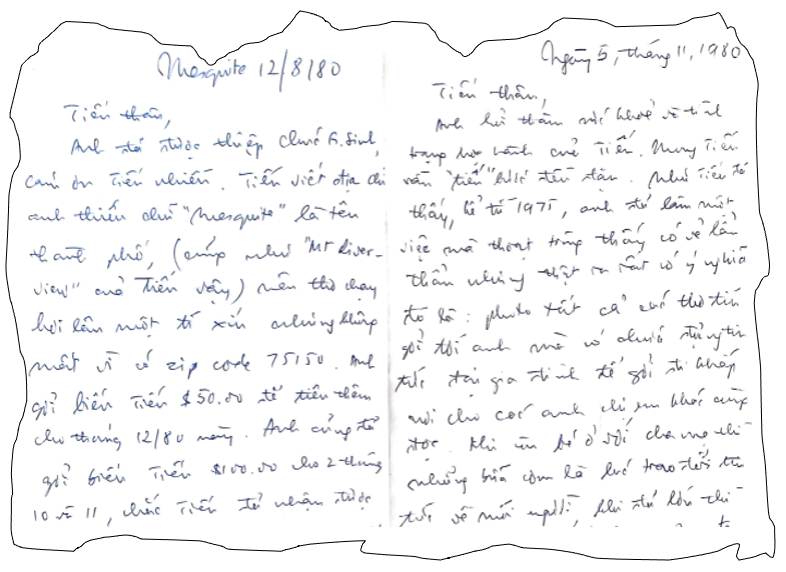 Mesquite 12/8/80
Tiến thân,
Anh đã được thiệp chúc G. Sinh,
cám ơn Tiến nhiều. Tiến viết địa chỉ
anh thiếu chữ "Mesquite" là tên
thành phố, (cũng như "Mt River-
view" của Tiến vậy) nên thơ chạy
hơi lâu một tí xíu nhưng không
mất vì có zip code 75150. Anh
gởi biếu Tiến $50.00 để tiêu thêm
cho tháng 12/80 này. Anh cũng đã
gởi biếu Tiến $100.00 cho 2 tháng
10 và 11, chắc Tiến đã nhận được
Ngày 5, tháng 11, 1980
Tiến thân,
Anh hỏi thăm sức khoẻ và tình
trạng học hành của Tiến. Mong Tiến
vẫn "tiến" đều đặn. Như Tiến đã
thấy, kể từ 1975, anh đã làm một
việc mà thoạt trông thấy có vẻ lẩn
thẩn nhưng thật ra rất có ý nghĩa
đó là: photo tất cả các thơ từ
gởi tới anh mà có chứa đựng tin
tức đại gia đình để gởi đi khắp
nơi cho các anh chị em khác cùng
đọc. Khi còn bé ở với cha mẹ thì
những bữa cơm là lúc trao đổi tin
tức về mọi người, khi đã lớn thì